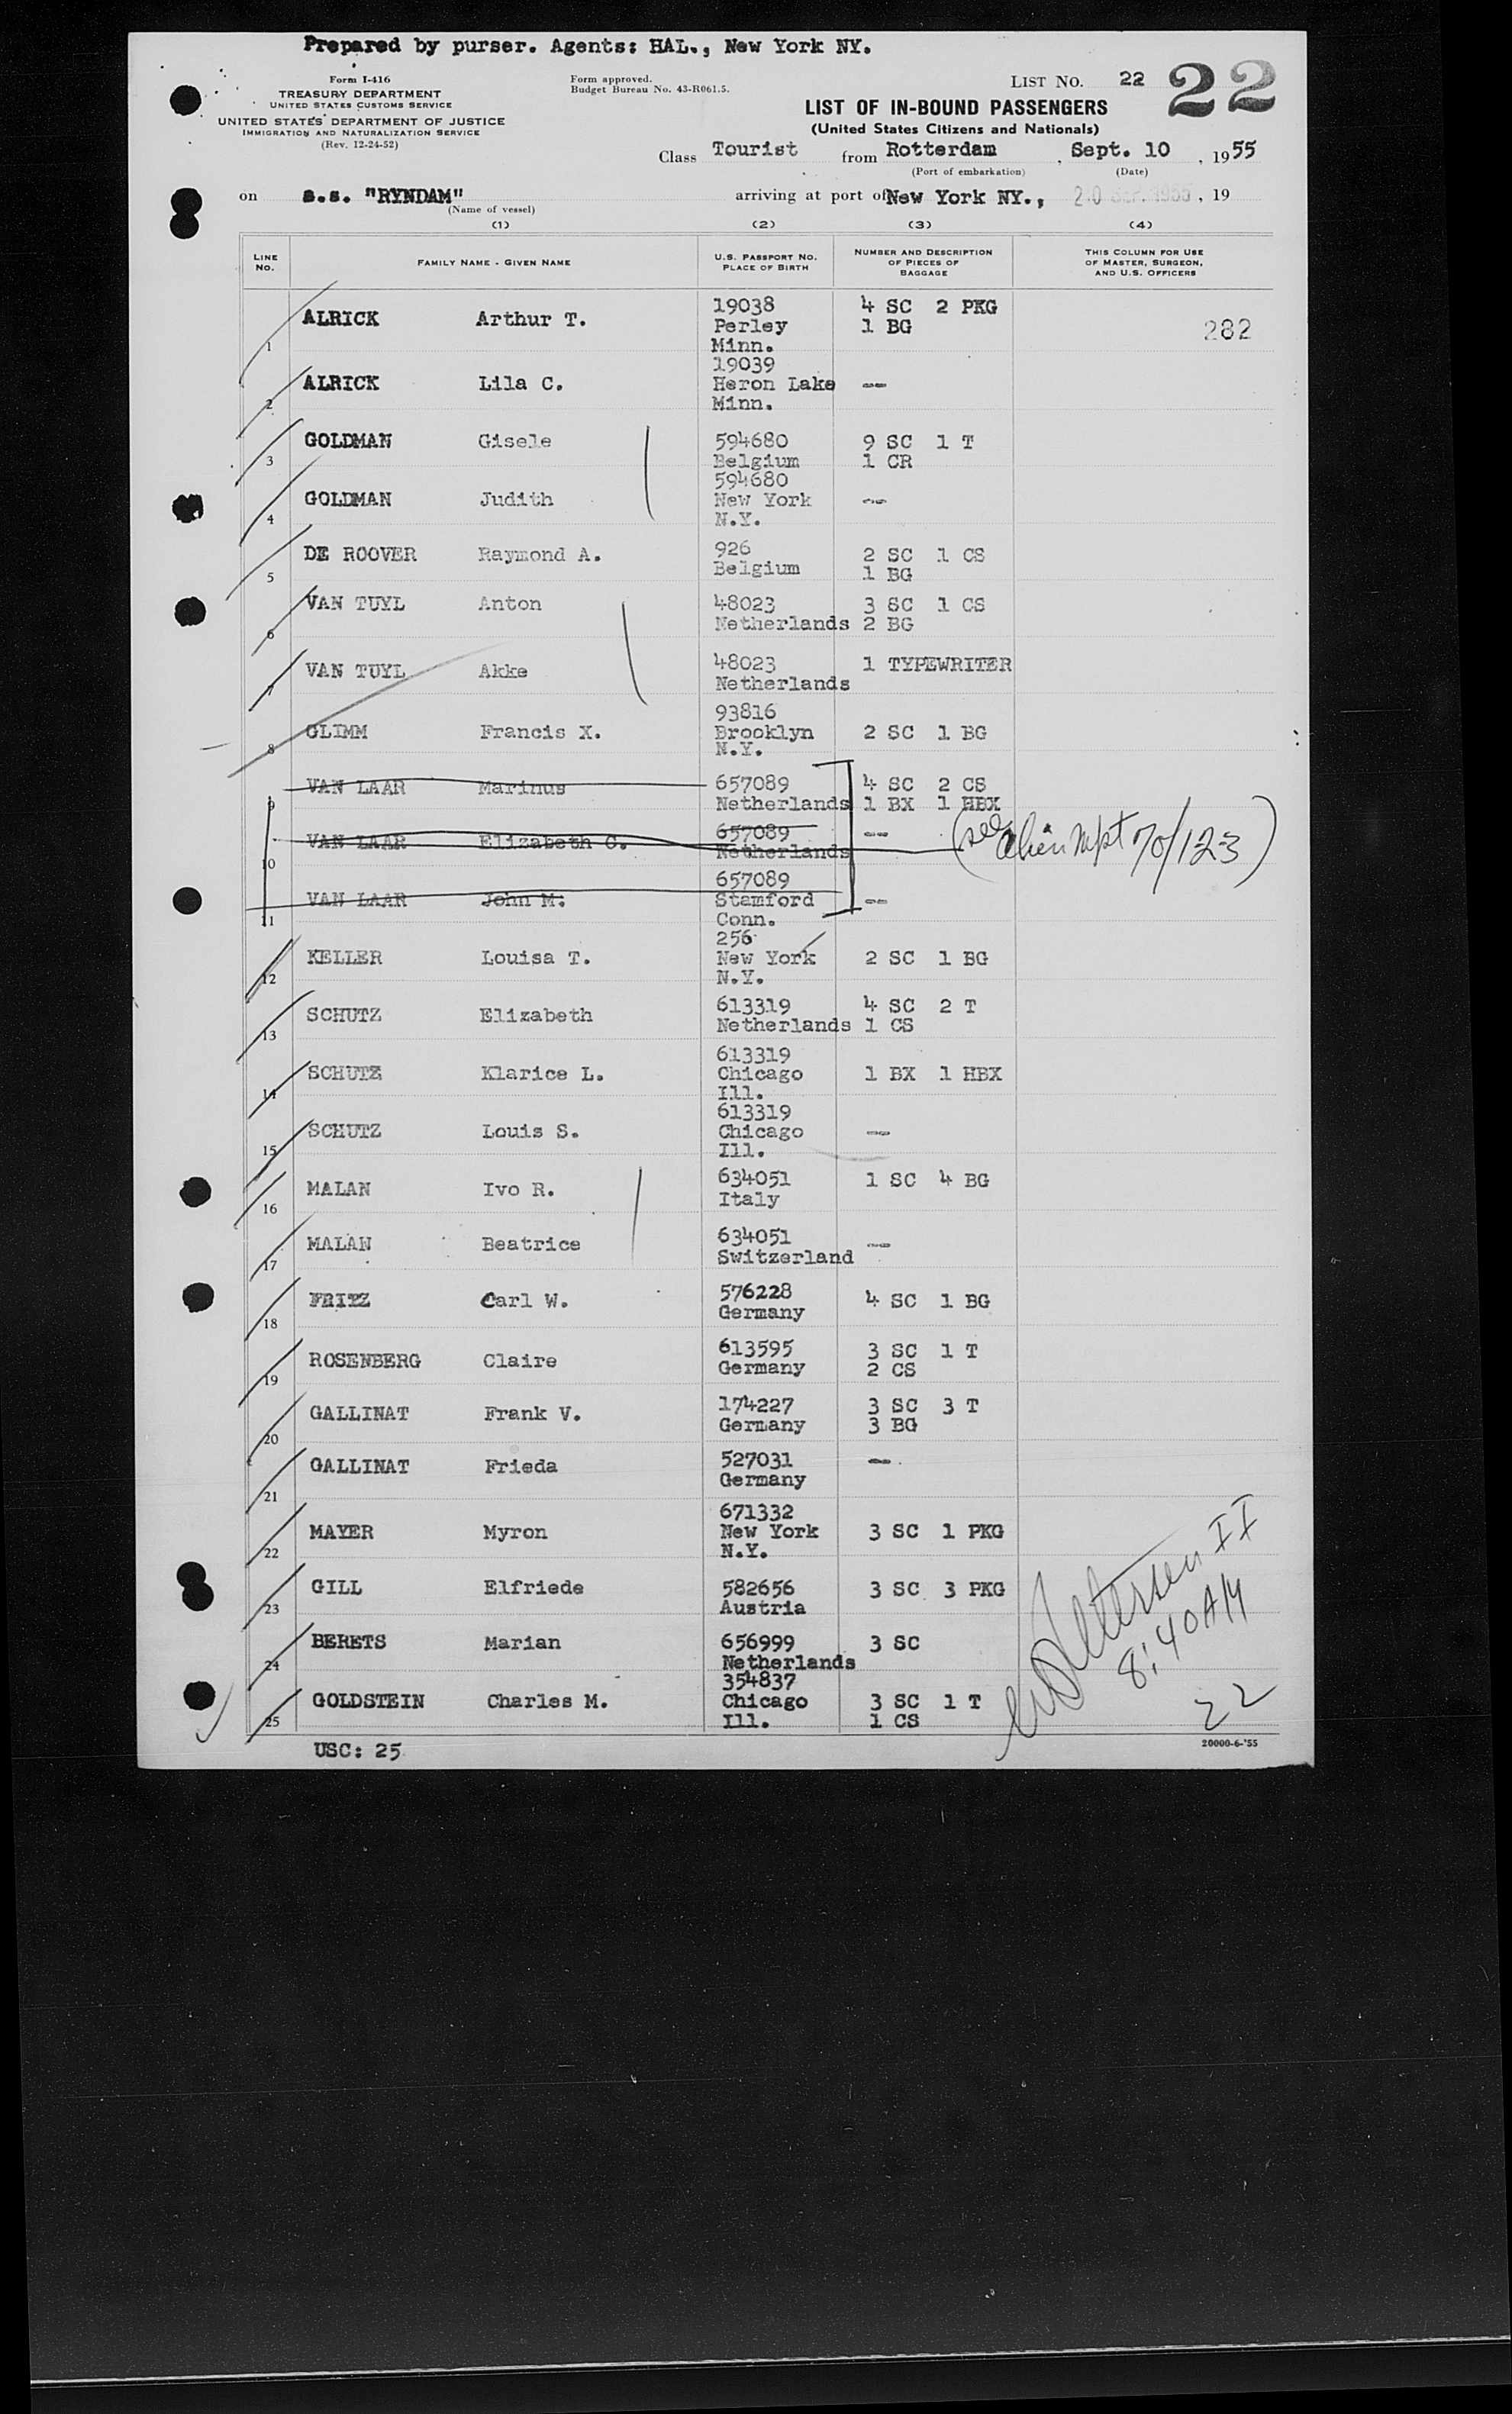 Prepared by purser. Agents: HAL., New York NY.
Form I-416
TREASURY DEPARTMENT
UNITED STATES CUSTOMS SERVICE
UNITED STATES DEPARTMENT OF JUSTICE
IMMIGRATION AND NATURALIZATION SERVICE
(Rev. 12-24-52)
Form approved.
Budget Bureau No. 43-R061.5.
LIST NO. 22 22
LIST OF IN-BOUND PASSENGERS
(United States Citizens and Nationals)
Class Tourist from Rotterdam, Sept. 10, 1955
(Port of embarkation) (Date)
on s.s. "RYNDAM" arriving at port of New York NY., 20 SEP. 1955, 19
(Name of vessel)
(1) (2) (3) (4)
LINE NO. FAMILY NAME - GIVEN NAME U.S. PASSPORT NO. PLACE OF BIRTH NUMBER AND DESCRIPTION OF PIECES OF BAGGAGE THIS COLUMN FOR USE OF MASTER, SURGEON, AND U.S. OFFICERS
1 ALRICK Arthur T. 19038 Perley Minn. 4 SC 2 PKG 1 BG 282
2 ALRICK Lila C. 19039 Heron Lake Minn. --
3 GOLDMAN Gisele 594680 Belgium 9 SC 1 T 1 CR
4 GOLDMAN Judith 594680 New York N.Y. --
5 DE ROOVER Raymond A. 926 Belgium 2 SC 1 CS 1 BG
6 VAN TUYL Anton 48023 Netherlands 3 SC 1 CS 2 BG
7 VAN TUYL Akke 48023 Netherlands 1 TYPEWRITER
8 GLIMM Francis X. 93816 Brooklyn N.Y. 2 SC 1 BG
9 VAN LAAR Marinus 657089 Netherlands 4 SC 2 CS 1 BX 1 HBX
10 VAN LAAR Elizabeth C. 657089 Netherlands -- (see alien 70/123)
11 VAN LAAR John M. 657089 Stamford Conn. --
12 KELLER Louisa T. 256 New York N.Y. 2 SC 1 BG
13 SCHUTZ Elizabeth 613319 Netherlands 4 SC 2 T 1 CS
14 SCHUTZ Klarice L. 613319 Chicago Ill. 1 BX 1 HBX
15 SCHUTZ Louis S. 613319 Chicago Ill. --
16 MALAN Ivo R. 634051 Italy 1 SC 4 BG
17 MALAN Beatrice 634051 Switzerland --
18 FRITZ Carl W. 576228 Germany 4 SC 1 BG
19 ROSENBERG Claire 613595 Germany 3 SC 1 T 2 CS
20 GALLINAT Frank V. 174227 Germany 3 SC 3 T 3 BG
21 GALLINAT Frieda 527031 Germany --
22 MAYER Myron 671332 New York N.Y. 3 SC 1 PKG
23 GILL Elfriede 582656 Austria 3 SC 3 PKG
24 BERETS Marian 656999 Netherlands 3 SC
25 GOLDSTEIN Charles M. 354837 Chicago Ill. 3 SC 1 T 1 CS
II
8:40 AM
22
USC: 25
20000-6-'55